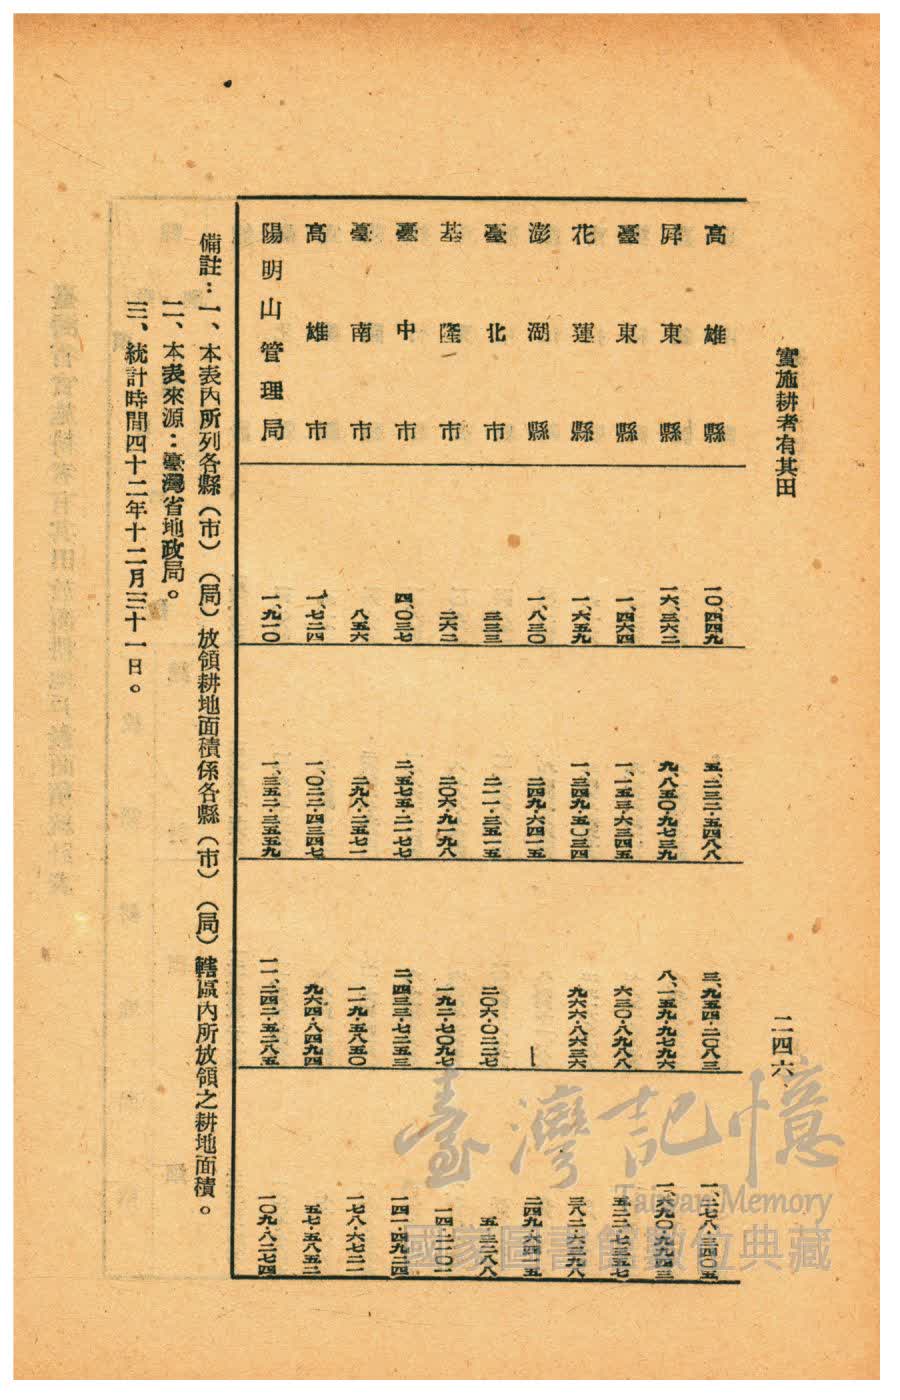 實施耕者有其田
二四六
高雄縣 一〇、四四九 五、二三二·五四八八 三、九五四·二〇八三 一、二七八·三四〇五
屏東縣 一六、三六二 九、八五〇·九七三九 八、一五九·九七九六 一、六九〇·九九四三
臺東縣 一、四六四 一、一五三·六三四五 六三〇·八九八八 五二二·七三五七
花蓮縣 一、六五九 一、三四九·五〇三四 九六六·八六三六 三八二·六三九八
澎湖縣 一、八三〇 二四九·六四一五 — 二四九·六四一五
臺北市 三三三 二一一·三五一五 二〇六·〇二二七 五·三二八八
基隆市 二六二 二〇六·九一九八 一九二·七〇九七 一四·二一〇一
臺中市 四、〇三七 二、五七五·二一七七 二、四三三·七二五三 一四一·四九二四
臺南市 八五六 二九八·二五七一 一一九·五八五〇 一七八·六七二一
高雄市 一、七二四 一、〇二二·四三四七 九六四·八四九四 五七·五八五二
陽明山管理局 一、九一〇 一、三五二·三五五九 一、二四二·五二八五 一〇九·八二七四
備註：一、本表內所列各縣（市）（局）放領耕地面積係各縣（市）（局）轄區內所放領之耕地面積。
二、本表來源：臺灣省地政局。
三、統計時間四十二年十二月三十一日。
臺灣記憶
Taiwan Memory
國家圖書館數位典藏